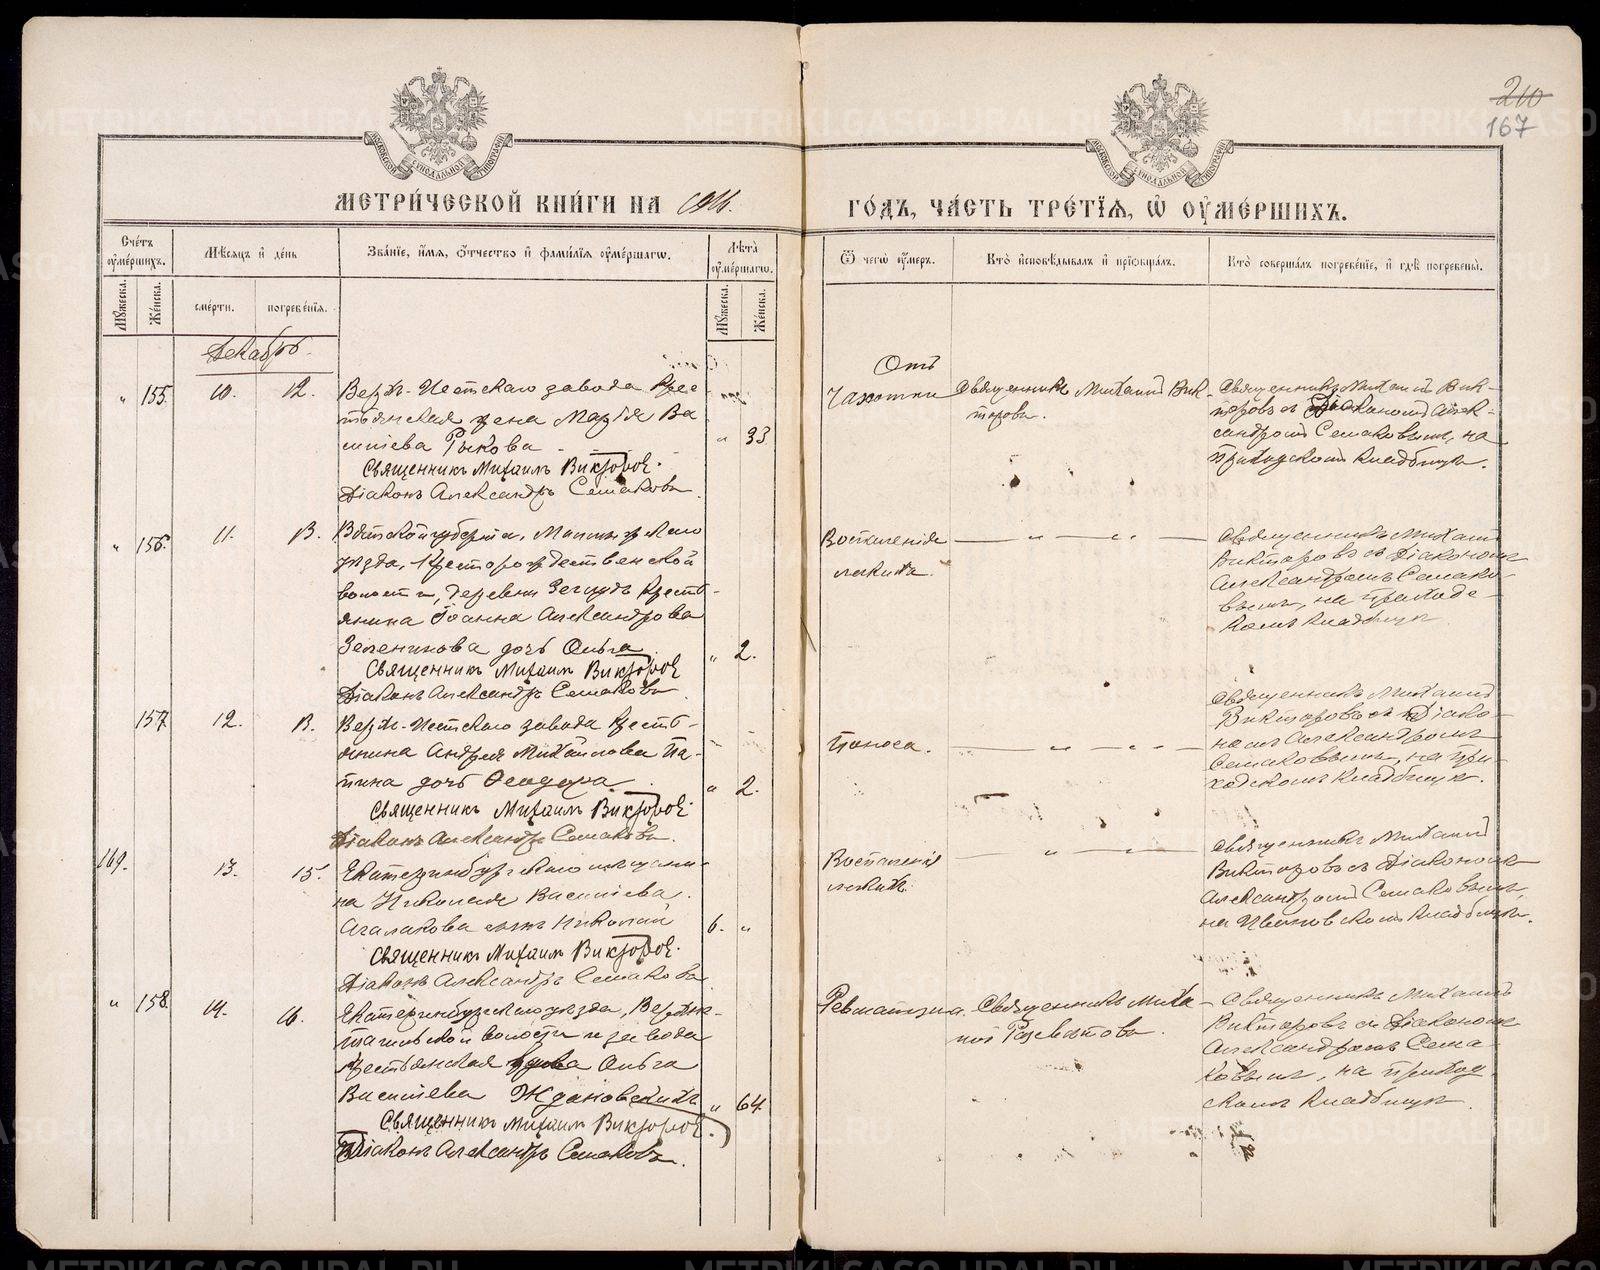 210
167
МОСКОВСКОЙ СѴНОДАЛЬНОЙ ТИПОГРАФІИ
МОСКОВСКОЙ СѴНОДАЛЬНОЙ ТИПОГРАФІИ
МЕТРИ́ЧЕСКОЙ КНИ́ГИ НА 1911. ГО́ДЪ, ЧА́СТЬ ТРЕ́ТЇѦ, Ѡ ОУМЕ́РШИХЪ.
Сче́тъ оуме́ршихъ.
Мѣ́сяцъ и де́нь
Зва́нїе, и́мѧ, ѻ́тчество и фами́лїѧ оуме́ршагѡ.
Лѣта̀ оуме́ршагѡ.
Ѿ чегѡ̀ оу́меръ.
Кто̀ и҆сповѣ́дывалъ и҆ прїѡбща́лъ.
Кто̀ соверша́лъ погребе́нїе, и҆ гдѣ̀ погребены̀.
Мꙋ́жеска. Же́нска.
сме́рти. погребе́нїѧ.
Мꙋ́жеска. Же́нска.
Декабрь.
" 155. 10. 12.
Верхъ-Исетскаго завода крес-
тьянская жена Марія Ва
сильева Рыкова
" 33
Священникъ Михаилъ Викторовъ.
Діаконъ Александръ Семаковъ.
Отъ
чахотки
Священникъ Михаилъ Вик-
торовъ.
Священникъ Михаилъ Вик-
торовъ съ Діакономъ Алек-
сандромъ Семаковымъ, на
приходскомъ кладбищѣ.
" 156. 11. 13.
Вятской губерніи, Малмыжскаго
уѣзда, Христорождественской
волости, деревни крестъ-
янина Іоанна Александрова
Зеленикова дочь Ольга
" 2.
Священникъ Михаилъ Викторовъ
Діаконъ Александръ Семаковъ
Воспаленія
легкихъ.
— " — " —
Священникъ Михаилъ
Викторовъ съ Діакономъ
Александромъ Семако-
вымъ, на приходс-
комъ кладбищѣ
157. 12. 13.
Верхъ-Исетскаго завода крестъ-
янина Андрея Михаилова Па-
тина дочь Ѳеодора
" 2.
Священникъ Михаилъ Викторовъ.
Діаконъ Александръ Семаковъ.
Поноса.
— " — " —
Священникъ Михаилъ
Викторовъ съ Діако-
номъ Александромъ
Семаковымъ, на при-
ходскомъ кладбищѣ.
169. 13. 15.
Екатеринбургскаго мѣщани-
на Николая Васильева
Агалакова сынъ Николай
6. "
Священникъ Михаилъ Викторовъ.
Діаконъ Александръ Семаковъ
Воспаленія
легкихъ.
— " — " —
Священникъ Михаилъ
Викторовъ съ Діакономъ
Александромъ Семаковымъ
на Ивановскомъ кладбищѣ.
" 158. 14. 16.
Екатеринбургскаго уѣзда, Верхне-
тагильской волости и завода
крестьянская вдова Ольга
Васильева Ждановскихъ
" 64.
Священникъ Михаилъ Викторовъ.
Діаконъ Александръ Семаковъ.
Ревматизма.
Священникъ Миха-
илъ
Священникъ Михаилъ
Викторовъ съ Діакономъ
Александромъ Сема-
ковымъ, на приход-
скомъ кладбищѣ.
METRIKI.GASO-URAL.RU